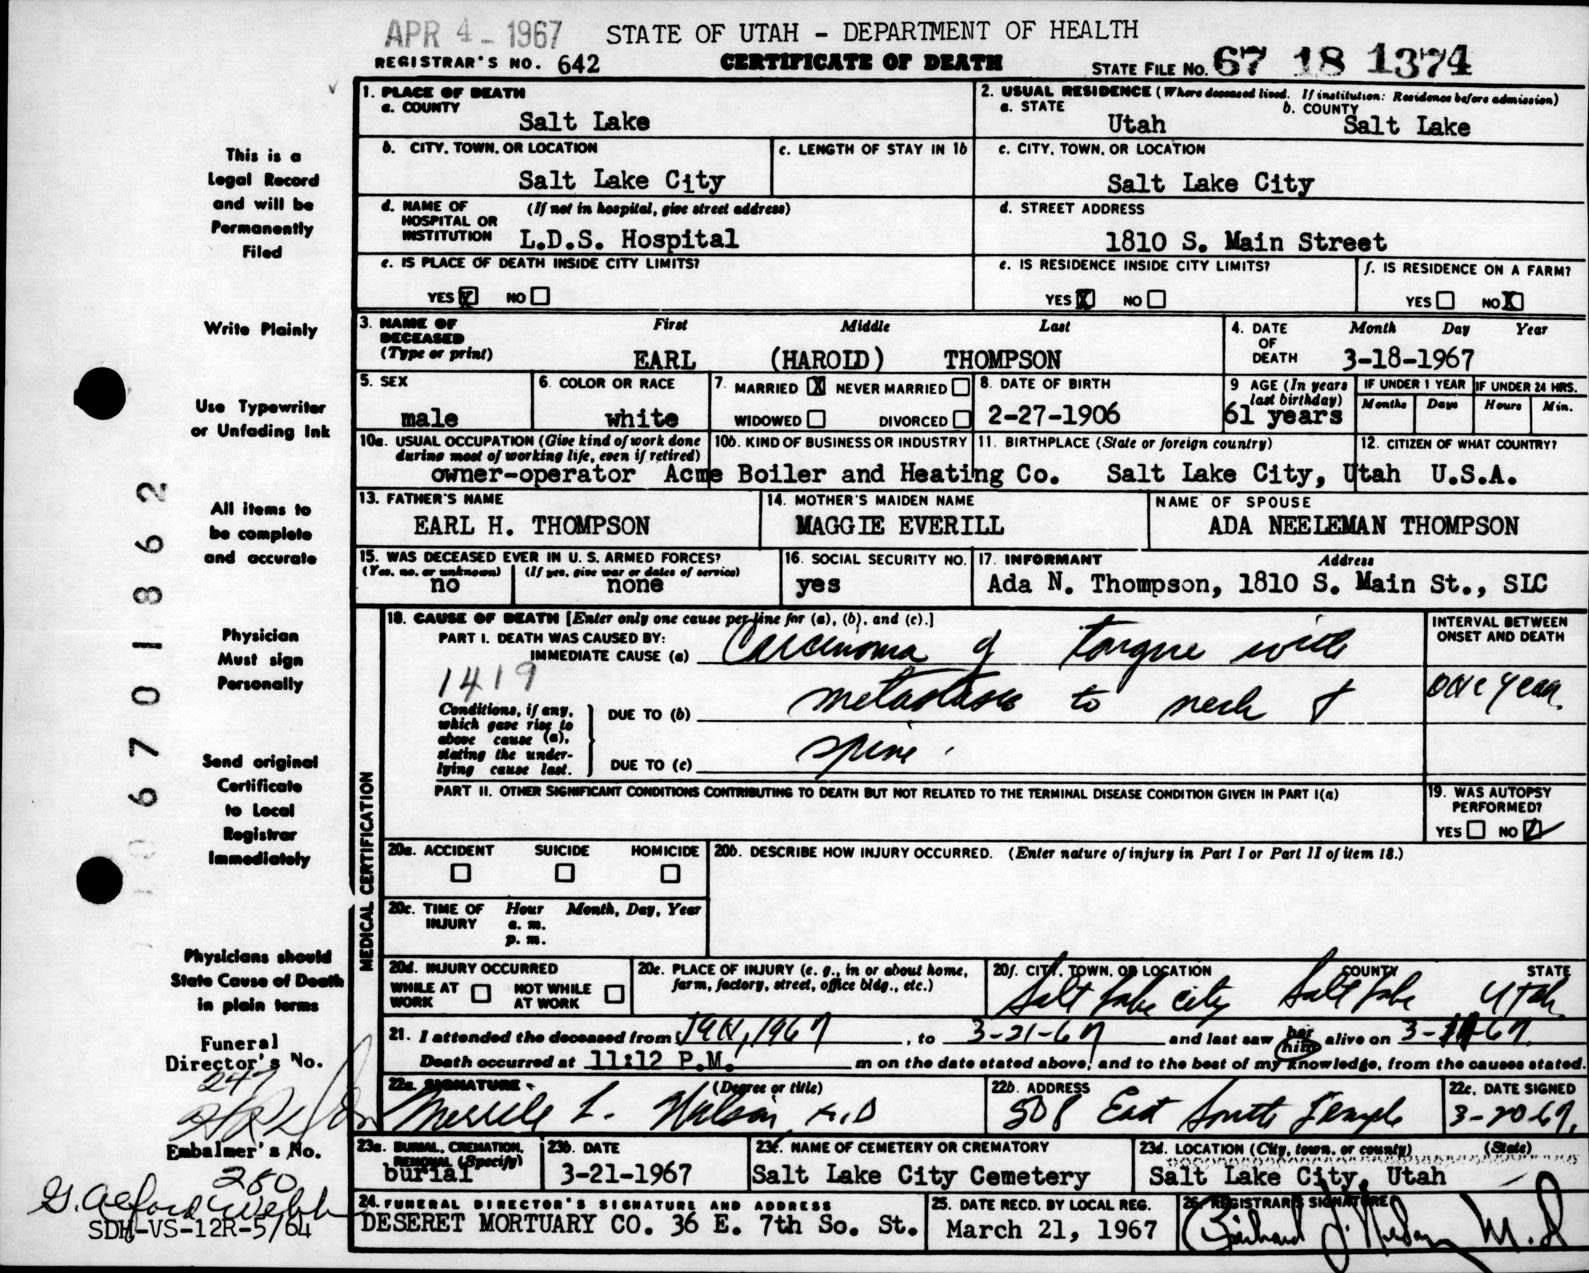 APR 4 - 1967 STATE OF UTAH - DEPARTMENT OF HEALTH
REGISTRAR'S NO. 642 CERTIFICATE OF DEATH STATE FILE NO. 67 18 1374
1. PLACE OF DEATH
a. COUNTY
Salt Lake
2. USUAL RESIDENCE (Where deceased lived. If institution: Residence before admission)
a. STATE b. COUNTY
Utah Salt Lake
b. CITY, TOWN, OR LOCATION
Salt Lake City
c. LENGTH OF STAY IN 1b
c. CITY, TOWN, OR LOCATION
Salt Lake City
d. NAME OF HOSPITAL OR INSTITUTION (If not in hospital, give street address)
L.D.S. Hospital
d. STREET ADDRESS
1810 S. Main Street
e. IS PLACE OF DEATH INSIDE CITY LIMITS?
YES X NO
e. IS RESIDENCE INSIDE CITY LIMITS?
YES X NO
f. IS RESIDENCE ON A FARM?
YES NO X
3. NAME OF DECEASED (Type or print) First Middle Last
EARL (HAROLD) THOMPSON
4. DATE OF DEATH Month Day Year
3-18-1967
5. SEX
male
6. COLOR OR RACE
white
7. MARRIED X NEVER MARRIED
WIDOWED DIVORCED
8. DATE OF BIRTH
2-27-1906
9 AGE (In years last birthday)
61 years
IF UNDER 1 YEAR IF UNDER 24 HRS.
Months Days Hours Min.
10a. USUAL OCCUPATION (Give kind of work done during most of working life, even if retired)
10b. KIND OF BUSINESS OR INDUSTRY
11. BIRTHPLACE (State or foreign country)
12. CITIZEN OF WHAT COUNTRY?
owner-operator Acme Boiler and Heating Co. Salt Lake City, Utah U.S.A.
13. FATHER'S NAME
EARL H. THOMPSON
14. MOTHER'S MAIDEN NAME
MAGGIE EVERILL
NAME OF SPOUSE
ADA NEELEMAN THOMPSON
15. WAS DECEASED EVER IN U. S. ARMED FORCES?
(Yes, no, or unknown) (If yes, give war or dates of service)
no none
16. SOCIAL SECURITY NO.
yes
17. INFORMANT Address
Ada N. Thompson, 1810 S. Main St., SLC
MEDICAL CERTIFICATION
18. CAUSE OF DEATH [Enter only one cause per line for (a), (b), and (c).]
PART I. DEATH WAS CAUSED BY:
IMMEDIATE CAUSE (a) Carcinoma of tongue with
1419
Conditions, if any, which gave rise to above cause (a), stating the underlying cause last.
DUE TO (b) metastases to neck &
DUE TO (c) spine
INTERVAL BETWEEN ONSET AND DEATH
one year.
PART II. OTHER SIGNIFICANT CONDITIONS CONTRIBUTING TO DEATH BUT NOT RELATED TO THE TERMINAL DISEASE CONDITION GIVEN IN PART I(a)
19. WAS AUTOPSY PERFORMED?
YES NO
20a. ACCIDENT SUICIDE HOMICIDE
20b. DESCRIBE HOW INJURY OCCURRED. (Enter nature of injury in Part I or Part II of item 18.)
20c. TIME OF INJURY Hour Month, Day, Year
a. m.
p. m.
20d. INJURY OCCURRED
WHILE AT WORK NOT WHILE AT WORK
20e. PLACE OF INJURY (e. g., in or about home, farm, factory, street, office bldg., etc.)
20f. CITY, TOWN, OR LOCATION COUNTY STATE
Salt Lake City Salt Lake Utah
21. I attended the deceased from Jan, 1967, to 3-21-67 and last saw her him alive on 3- -67.
Death occurred at 11:12 P.M. m on the date stated above, and to the best of my knowledge, from the causes stated.
22a. SIGNATURE (Degree or title)
Merrill L. Wilson M.D
22b. ADDRESS
508 East South Temple
22c. DATE SIGNED
3-20-67.
23a. BURIAL, CREMATION, REMOVAL (Specify)
burial
23b. DATE
3-21-1967
23c. NAME OF CEMETERY OR CREMATORY
Salt Lake City Cemetery
23d. LOCATION (City, town, or county) (State)
Salt Lake City, Utah
24. FUNERAL DIRECTOR'S SIGNATURE AND ADDRESS
DESERET MORTUARY CO. 36 E. 7th So. St.
25. DATE RECD. BY LOCAL REG.
March 21, 1967
26. REGISTRAR'S SIGNATURE
M.D
This is a
Legal Record
and will be
Permanently
Filed
Write Plainly
Use Typewriter
or Unfading Ink
All items to
be complete
and accurate
Physician
Must sign
Personally
Send original
Certificate
to Local
Registrar
Immediately
Physicians should
State Cause of Death
in plain terms
Funeral
Director's No.
247
Embalmer's No.
280
G. Alford Webb
SDH-VS-12R-5/64
0 6 7 0 1 8 6 2